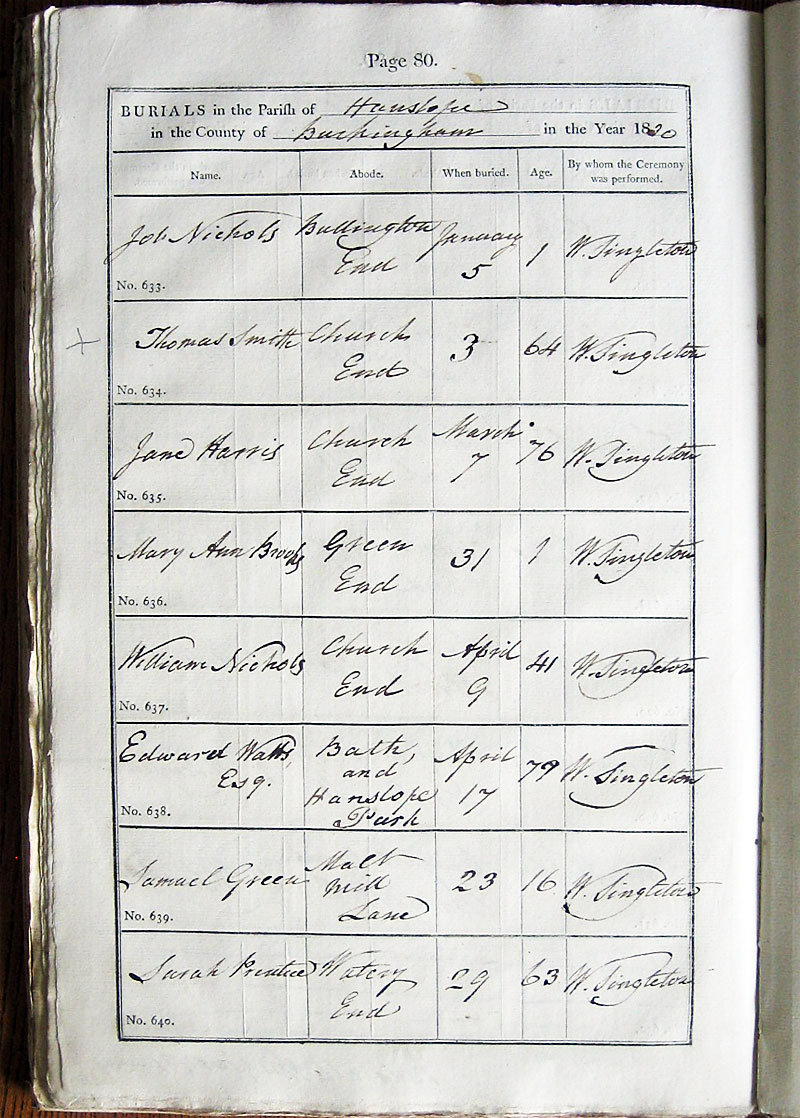 Page 80.
BURIALS in the Parish of Hanslope
in the County of Buckingham in the Year 1830
Name. Abode. When buried. Age. By whom the Ceremony was performed.
Job Nichols Bullington January
End 5 1 W. Singleton
No. 633.
Thomas Smith Church 3 64 W. Singleton
End
No. 634.
Jane Harris Church March 76 W. Singleton
End 7
No. 635.
Mary Ann Brooks Green 31 1 W. Singleton
End
No. 636.
William Nichols Church April 41 W. Singleton
End 9
No. 637.
Edward Watts Bath, April 79 W. Singleton
Esq. and
Hanslope 17
Park
No. 638.
Samuel Green Malt 23 16 W. Singleton
Mill
Lane
No. 639.
Sarah Prentice Watery 29 63 W. Singleton
End
No. 640.